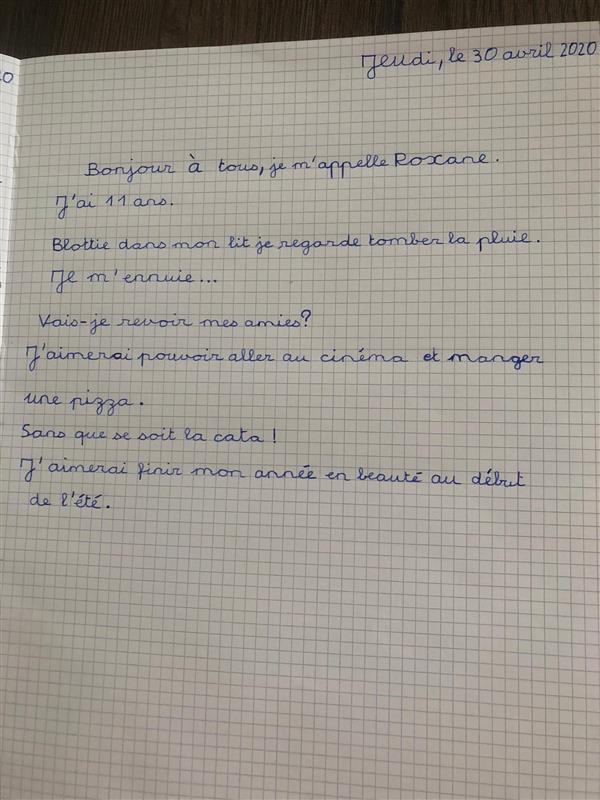 Jeudi, le 30 avril 2020
Bonjour à tous, je m'appelle Roxane.
J'ai 11 ans.
Blottie dans mon lit je regarde tomber la pluie.
Je m'ennuie...
Vais-je revoir mes amies?
J'aimerai pouvoir aller au cinéma et manger
une pizza.
Sans que se soit la cata !
J'aimerai finir mon année en beauté au début
de l'été.